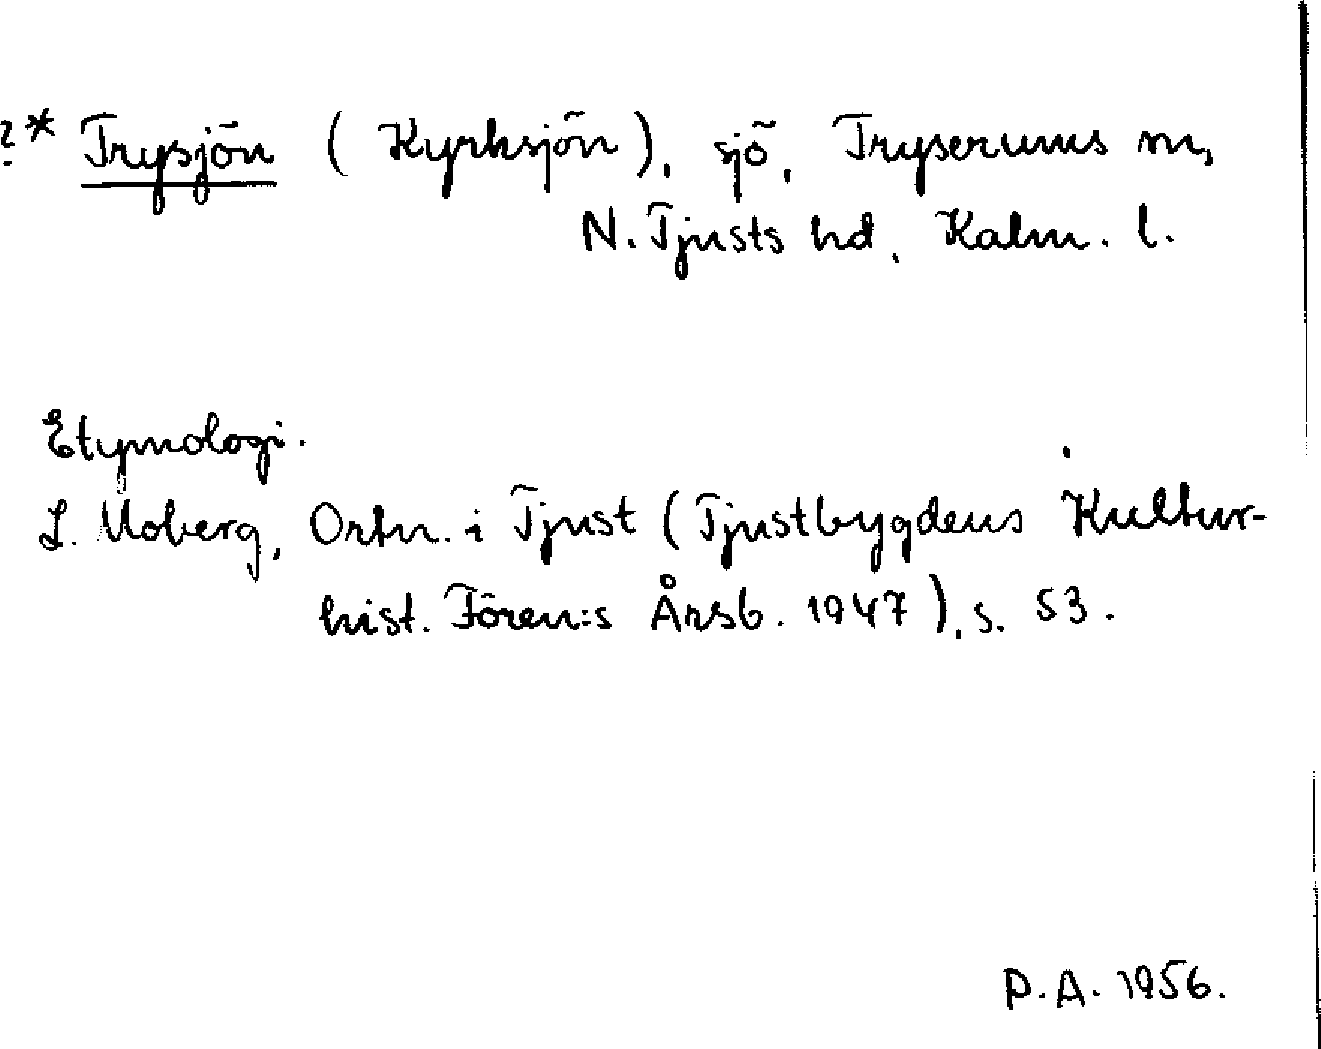 ?* Trysjön (Kyrksjön), sjö, Tryserums sn,
N. Tjusts hd, Kalm. l.
Etymologi.
L. Moberg, Ortn. i Tjust (Tjustbygdens Kultur-
hist. Fören:s Årsb. 1947), s. 53.
P.A. 1956.